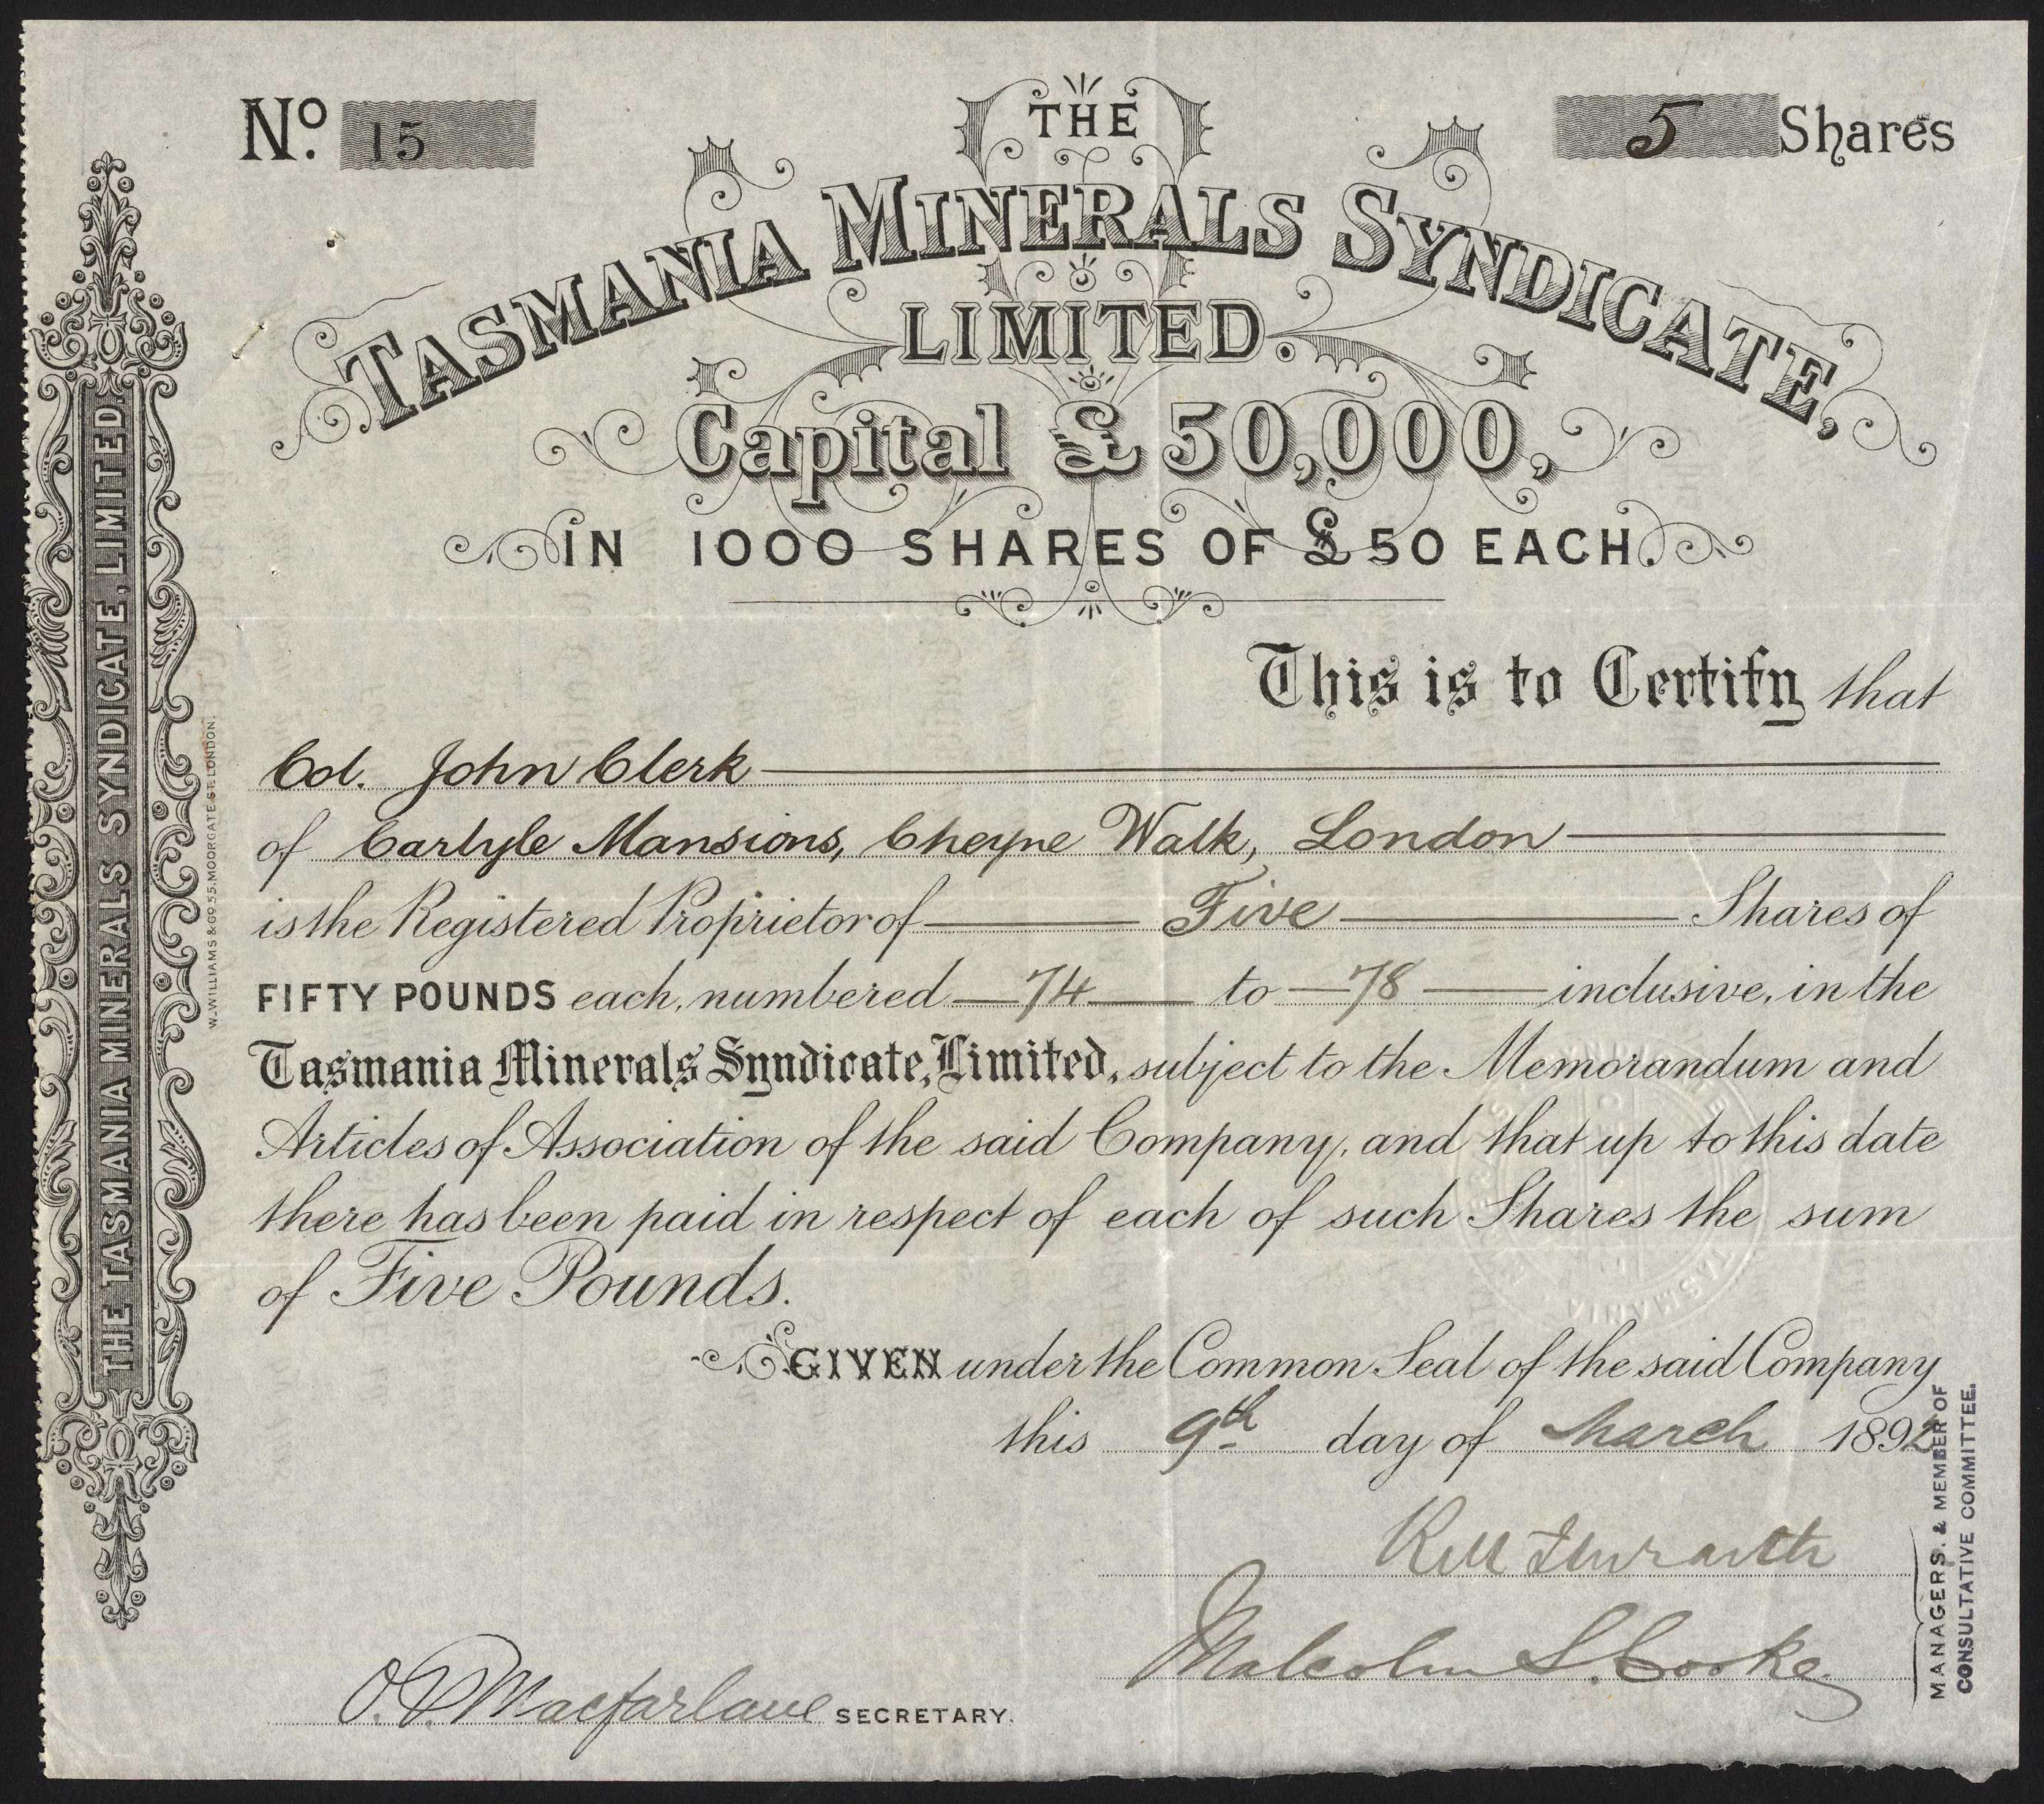 No. 15
5 Shares
THE
TASMANIA MINERALS SYNDICATE,
LIMITED.
Capital £50,000,
IN 1000 SHARES OF £50 EACH.
This is to Certify that
Col. John Clerk
of Carlyle Mansions, Cheyne Walk, London
is the Registered Proprietor of Five Shares of
FIFTY POUNDS each, numbered 74 to 78 inclusive, in the
Tasmania Minerals Syndicate, Limited, subject to the Memorandum and
Articles of Association of the said Company, and that up to this date
there has been paid in respect of each of such Shares the sum
of Five Pounds.
GIVEN under the Common Seal of the said Company
this 9th day of March 1892
Malcolm S. Cooke
MANAGERS. & MEMBER OF
CONSULTATIVE COMMITTEE.
O.P. Macfarlane SECRETARY.
THE TASMANIA MINERALS SYNDICATE, LIMITED.
W. WILLIAMS & CO. 55, MOORGATE ST. LONDON.